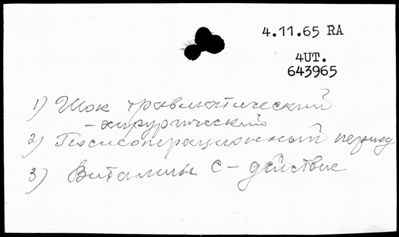 4.11.65 RA
4UT.
643965
1) Шок травматический
- хирургический
2) Послеоперационный период
3) Витамины С - действие